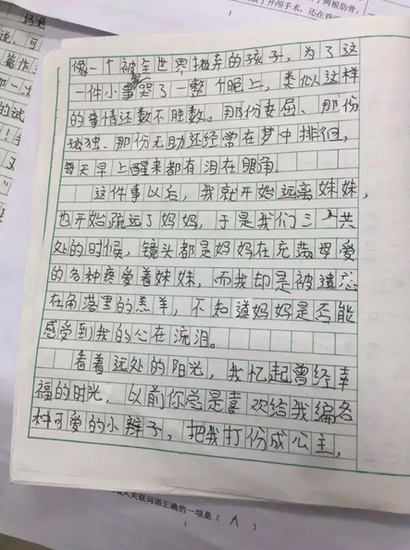 了两根肋骨,
了开颅手术,还在昏
像一个被全世界抛弃的孩子,为了这
一件小事哭了一整个晚上,类似这样
的事情还数不胜数。那份委屈、那份
孤独、那份无助还经常在梦中排徊,
每天早上醒来都有泪在眼角
这件事以后,我就开始远离妹妹,
也开始疏远了妈妈,于是我们三人共
处的时候,镜头都是妈妈在充满母爱
的各种疼爱着妹妹,而我却是被遗忘
在角落里的羔羊,不知道妈妈是否能
感受到我的心在流泪。
看着远处的阳光,我忆起曾经幸
福的时光,以前你总是喜欢给我编各
种可爱的小辫子,把我打份成公主,
入关联词语正确的一项是(A)